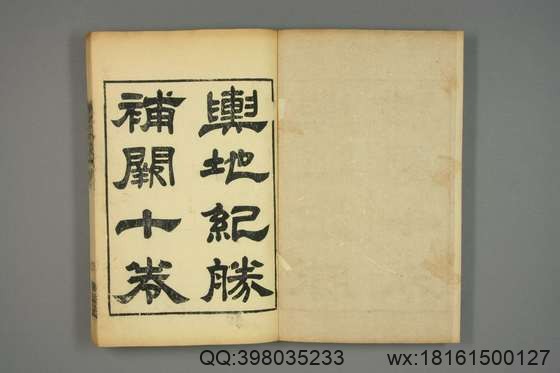 輿地紀勝
補闕十卷
QQ:398035233 wx:18161500127